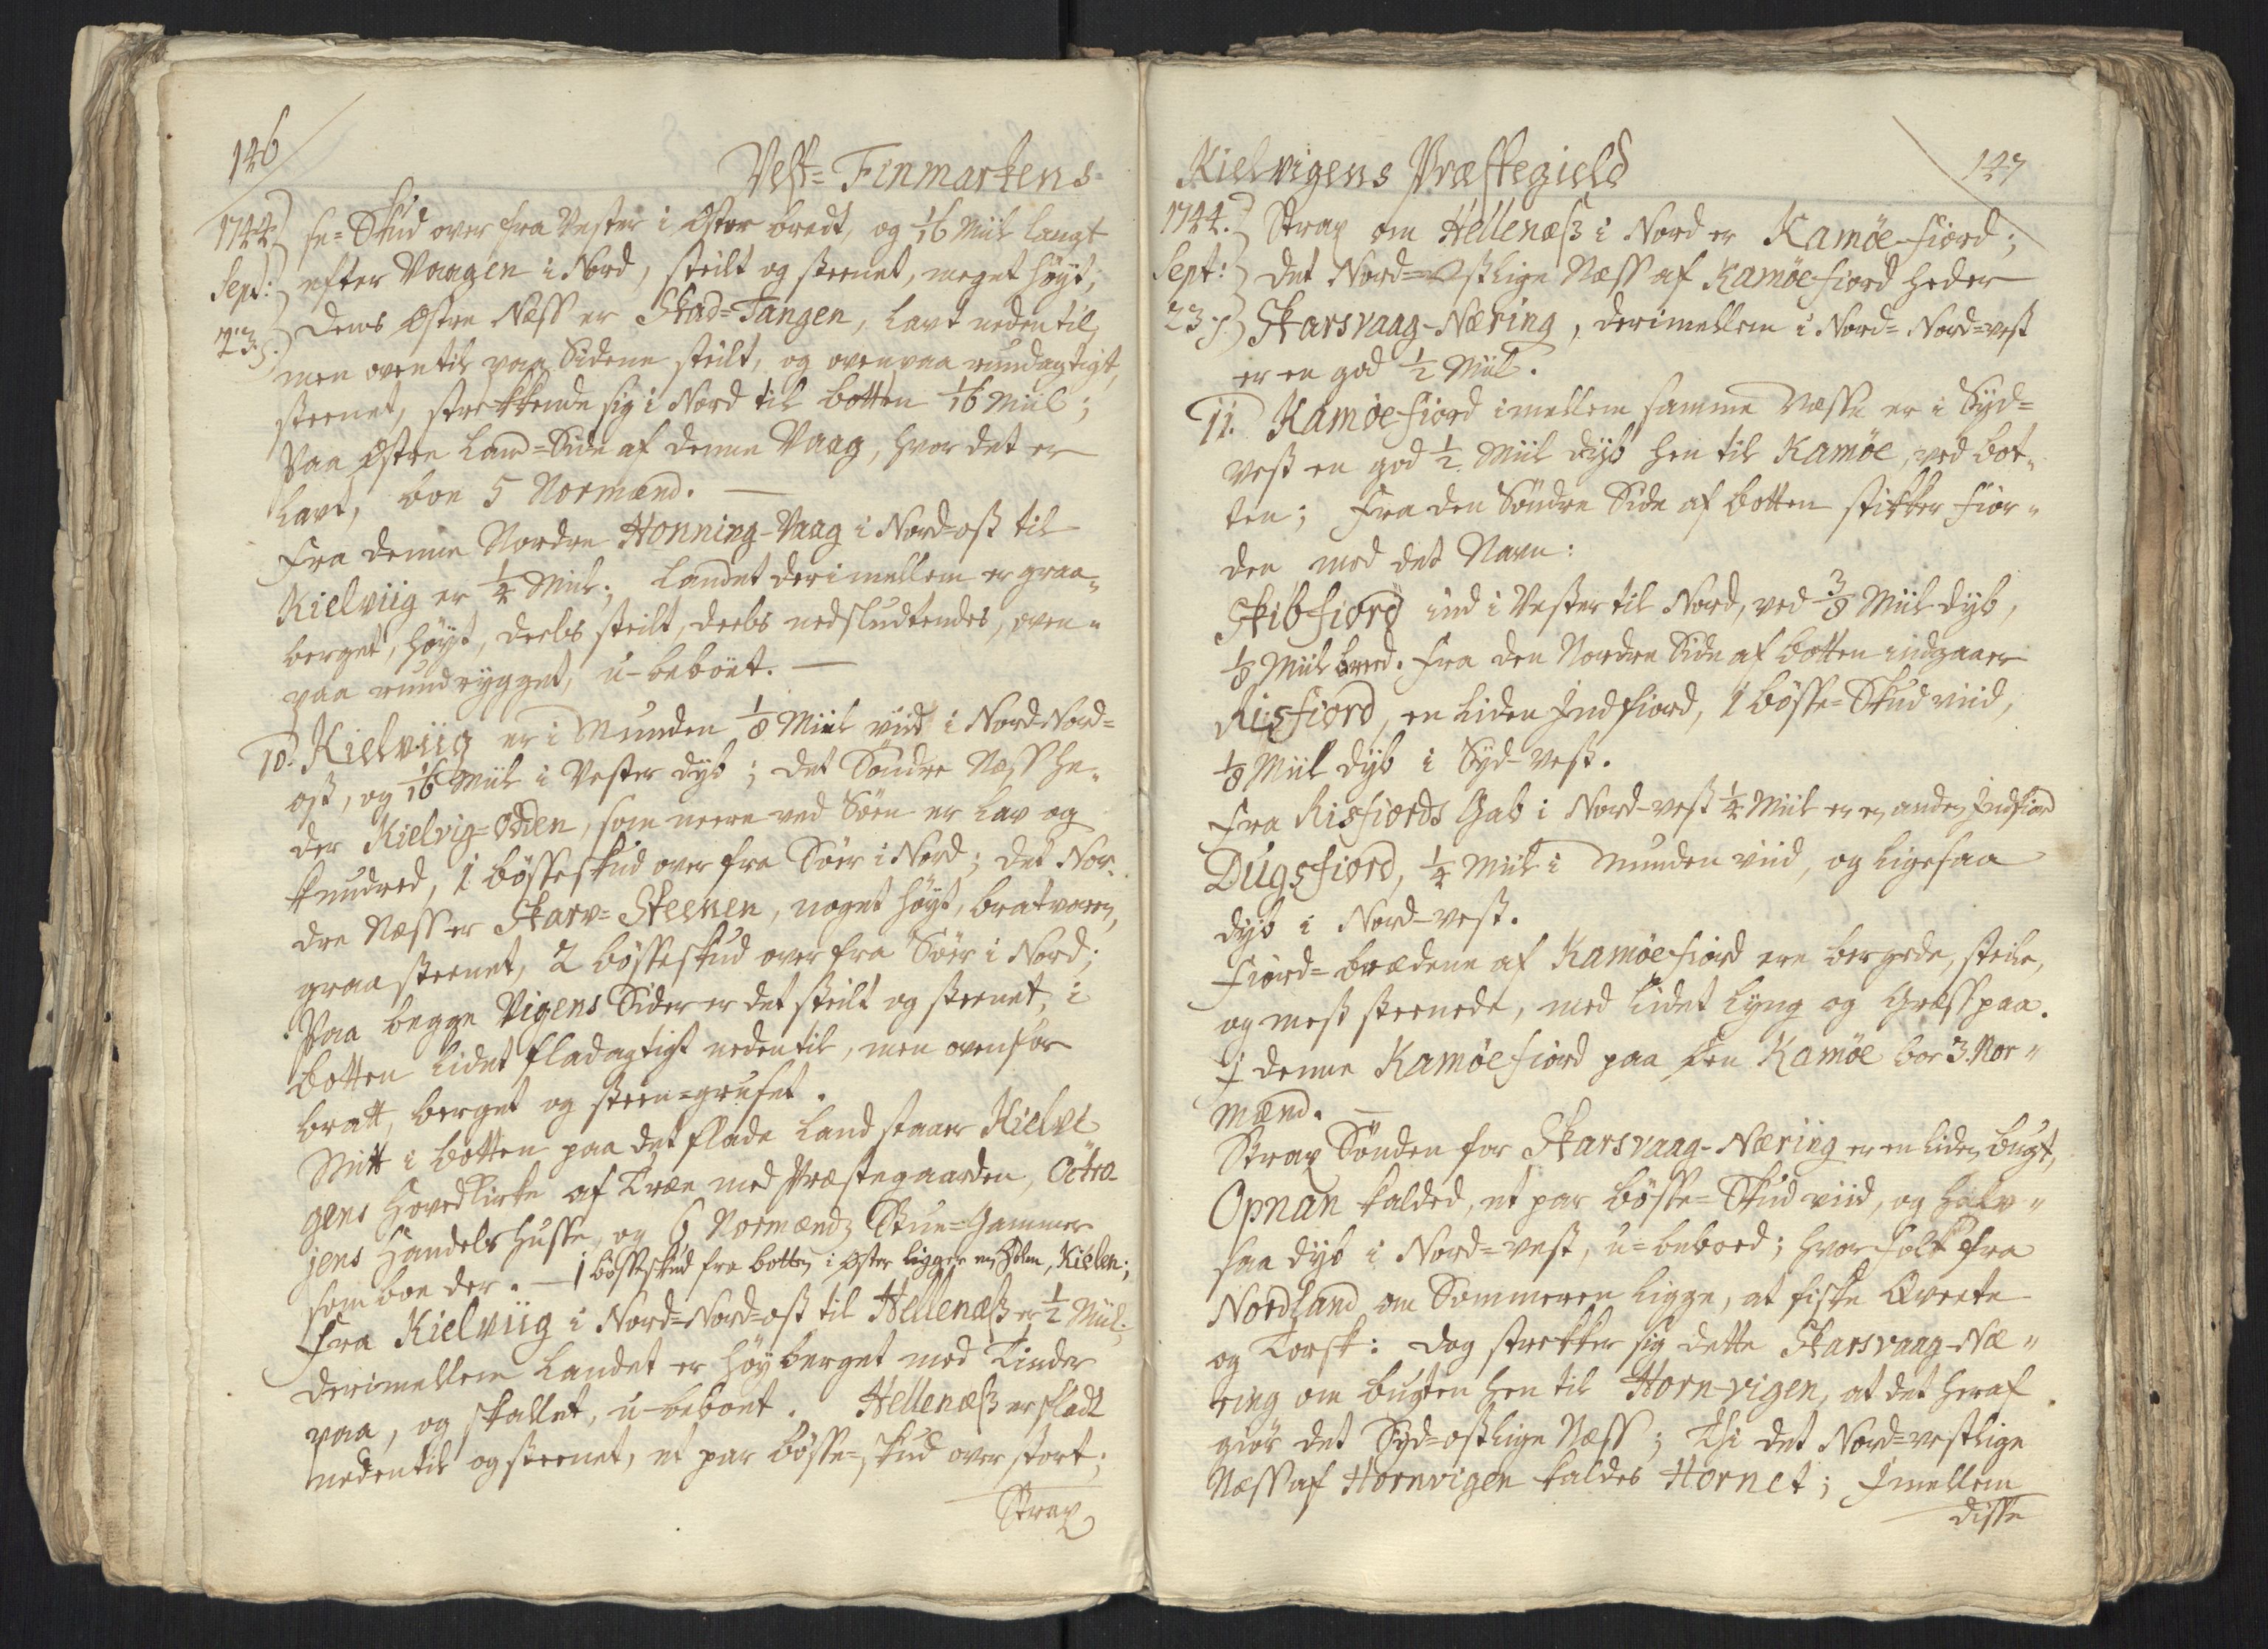 146
Vest-Finmarkens
1744. se-Skud over fra Vester i Øster bredt, og 1/16 Miil langt
Sept: efter Vaagen i Nord, steilt og steenet, meget høyt;
23.) Dens Østre Næss er Stad-Tangen, lavt nedentil,
men oventil paa Sidene steilt, og ovenpaa rundagtigt,
steenet, strekkende sig i Nord til botten 1/16 Miil;
Paa Østre Land-Side af denne Vaag, hvor det er
lavt, boe 5 Normænd. —
Fra denne Nordre Honning-Vaag i Nord-ost til
Kielviig er 1/4 Miil; Landet derimellem er graa-
berget, høyt, deels steilt, deels nedsludtendes, oven-
paa rundrygget, u-beboet. —
10. Kielviig er i Munden 1/8 Miil viid i Nord-Nord-
ost, og 1/16 Miil i Vester dyb; det Søndre Næss he-
der Kielvig-Odden, som neere ved Søen er lav og
knudred, 1 bøsseskud over fra Søer i Nord; det Nor-
dre Næss er Skarv-Steenen, noget høyt, bratvoren,
graasteenet, 2 bøsseskud over fra Søer i Nord;
Paa begge Vigens Sider er det steilt og steenet, i
botten lidet fladagtigt nedentil, men ovenfor
bratt, berget og steen-gruset.
Mitt i botten paa det flade Land staaer Kielvi-
gens Hovedkirke af Træe med Præstegaarden, Octro-
jens Handels Husse, og 6 Normænds Stue-Gammer
som boe der. — 1 bøsseskud fra botten i Øster ligger en Holm, Kielen;
Fra Kielviig i Nord-Nord-ost til Hellenæß er 1/2 Miil;
derimellem Landet er høyberget med Tinder
paa, og skallet, u-beboet. Hellenæß er fladt
nedentil og steenet, et par bøsse-skud over stort;
Strax
Kielvigens Præstegield
147
1744. Strax om Hellenæß i Nord er Kamøe-fiord;
Sept: det Nord-Østlige Næss af Kamøefiord heder
23.) Skarsvaag-Næring, derimellem i Nord-Nord-vest
er en god 1/2 Miil.
11. Kamøe-fiord imellem samme Næsse er i Syd-
vest en god 1/2 Miil dyb hen til Kamøe, ved bot-
ten; Fra den Søndre Side af botten stikker Fior-
den med det Navn:
Skibfiord ind i Vester til Nord, ved 3/8 Miil dyb,
1/8 Miil breed. Fra den Nordre Side af botten indgaaer
Risfiord, en liden Indfiord, 1 bøsse-Skud viid,
1/8 Miil dyb i Syd-vest.
Fra Risfiords Gab i Nord-vest 1/4 Miil er en anden Indfiord
Dugsfiord, 1/4 Miil i Munden viid, og ligesaa
dyb i Nord-vest.
Fiord-brædene af Kamøefiord ere bergede, steile,
og mest steenede, med lidet Lyng og Græss paa.
I denne Kamøefiord paa Øen Kamøe boe 3 Nor-
mænd. —
Strax Sønden for Skarsvaag-Næriing er en liden bugt,
Opnan kalded, et par bøsse-Skud viid, og halv-
saa dyb i Nord-vest, u-beboed; hvor folk fra
Nordland om Sommeren ligge, at fiske Qveete
og Torsk: Dog strekker sig dette Skarsvaag-Næ-
ring om bugten hen til Horn-vigen, at det heraf
giør det Syd-ostlige Næss; Thi det Nord-vestlige
Næss af Hornvigen kaldes Hornet; Imellem
disse